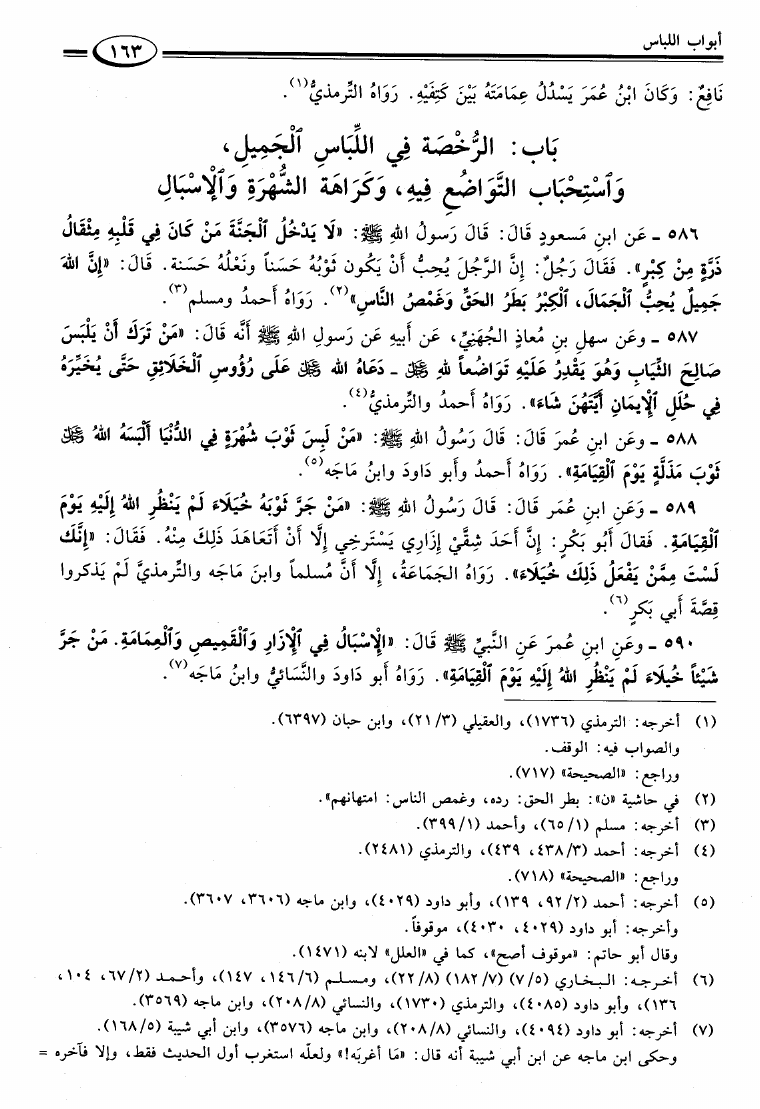 أبواب اللباس
١٦٣
نَافِعٌ: وَكَانَ ابْنُ عُمَرَ يَسْدُلُ عِمَامَتَهُ بَيْنَ كَتِفَيْهِ. رَوَاهُ التِّرمذيُّ(١).
بَاب: الرُّخْصَة فِي اللِّبَاسِ ٱلْجَمِيلِ،
وَٱسْتِحْبَاب التَّوَاضُعِ فِيهِ، وَكَرَاهَة الشُّهْرَةِ وَٱلْإسْبَالِ
٥٨٦ - عَن ابنِ مَسعودٍ قَالَ: قَالَ رَسولُ اللهِ ﷺ: «لَا يَدْخُلُ ٱلْجَنَّةَ مَنْ كَانَ فِي قَلْبِهِ مِثْقَالُ
ذَرَّةٍ مِنْ كِبْرٍ». فَقَالَ رَجُلٌ: إِنَّ الرَّجُلَ يُحِبُّ أَنْ يَكُون ثَوْبُهُ حَسَناً وَنَعْلُهُ حَسَنة. قَالَ: «إِنَّ اللهَ
جَمِيلٌ يُحِبُّ ٱلْجَمَالَ، ٱلْكِبْرُ بَطَرُ الحَقِّ وَغَمْصُ النَّاسِ»(٢). رَوَاهُ أحمدُ ومسلم(٣).
٥٨٧ - وعَن سهلِ بنِ مُعاذٍ الجُهَنِيِّ، عَن أبيهِ عَن رسولِ اللهِ ﷺ أنَّه قَالَ: «مَنْ تَرَكَ أَنْ يَلْبَسَ
صَالِحَ الثِّيَابِ وَهُوَ يَقْدِرُ عَلَيْهِ تَوَاضُعاً للهِ ﷻ - دَعَاهُ الله ﷻ عَلَى رُؤُوسِ ٱلْخَلَائِقِ حَتَّى يُخَيِّرَهُ
فِي حُلَلِ ٱلْإِيمَانِ أَيَّتَهُنَّ شَاءَ». رَوَاهُ أحمدُ والتِّرمذيُّ(٤).
٥٨٨ - وعَن ابنِ عُمرَ قَالَ: قَالَ رَسُولُ اللهِ ﷺ: «مَنْ لَبِسَ ثَوْبَ شُهْرَةٍ فِي الدُّنْيَا أَلْبَسَهُ اللهُ ﷻ
ثَوْبَ مَذَلَّةٍ يَوْمَ ٱلْقِيَامَةِ». رَوَاهُ أحمدُ وأبو داودَ وابنُ مَاجَه(٥).
٥٨٩ - وَعَن ابنِ عُمَر قَالَ: قَالَ رَسُولُ اللهِ ﷺ: «مَنْ جَرَّ ثَوْبَهُ خُيَلَاءَ لَمْ يَنْظُرِ اللهُ إِلَيْهِ يَوْمَ
ٱلْقِيَامَةِ. فَقالَ أَبُو بَكْرٍ: إِنَّ أَحَدَ شِقَّيْ إِزَارِي يَسْتَرخِي إِلَّا أَنْ أَتَعَاهَدَ ذَلِكَ مِنْهُ. فَقَالَ: «إِنَّكَ
لَسْتَ مِمَّنْ يَفْعَلُ ذَلِكَ خُيَلَاءَ». رَوَاهُ الجَمَاعَةُ، إِلَّا أَنَّ مُسلماً وابنَ مَاجَه والتِّرمذيَّ لَمْ يَذكروا
قِصَّةَ أبي بَكرٍ(٦).
٥٩٠ - وعَنِ ابنِ عُمرَ عَنِ النَّبيِّ ﷺ قَالَ: «الْإِسْبَالُ فِي ٱلْإِزَارِ وَٱلْقَمِيصِ وَٱلْعِمَامَةِ. مَنْ جَرَّ
شَيْئاً خُيلَاءَ لَمْ يَنْظُرِ اللهُ إِلَيْهِ يَوْمَ ٱلْقِيَامَةِ». رَوَاهُ أبو دَاودَ والنَّسَائيُّ وابنُ مَاجَه(٧).
(١) أخرجه: الترمذي (١٧٣٦)، والعقيلي (٢١/٣)، وابن حبان (٦٣٩٧).
والصواب فيه: الوقف.
وراجع: «الصحيحة» (٧١٧).
(٢) في حاشية «ن»: بطر الحق: رده، وغمص الناس: امتهانهم».
(٣) أخرجه: مسلم (٦٥/١)، وأحمد (٣٩٩/١).
(٤) أخرجه: أحمد (٤٣٨/٣، ٤٣٩)، والترمذي (٢٤٨١).
وراجع: «الصحيحة» (٧١٨).
(٥) أخرجه: أحمد (٩٢/٢، ١٣٩)، وأبو داود (٤٠٢٩)، وابن ماجه (٣٦٠٦، ٣٦٠٧).
وأخرجه: أبو داود (٤٠٢٩، ٤٠٣٠)، موقوفاً.
وقال أبو حاتم: «موقوف أصح»، كما في «العلل» لابنه (١٤٧١).
(٦) أخرجه: البخاري (٧/٥) (١٨٢/٧) (٢٢/٨)، ومسلم (١٤٦/٦، ١٤٧)، وأحمد (٦٧/٢، ١٠٤،
١٣٦)، وأبو داود (٤٠٨٥)، والترمذي (١٧٣٠)، والنسائي (٢٠٨/٨)، وابن ماجه (٣٥٦٩).
(٧) أخرجه: أبو داود (٤٠٩٤)، والنسائي (٢٠٨/٨)، وابن ماجه (٣٥٧٦)، وابن أبي شيبة (١٦٨/٥).
وحكى ابن ماجه عن ابن أبي شيبة أنه قال: «مَا أغربَه!» ولعلّه استغرب أول الحديث فقط، وإلا فآخره =